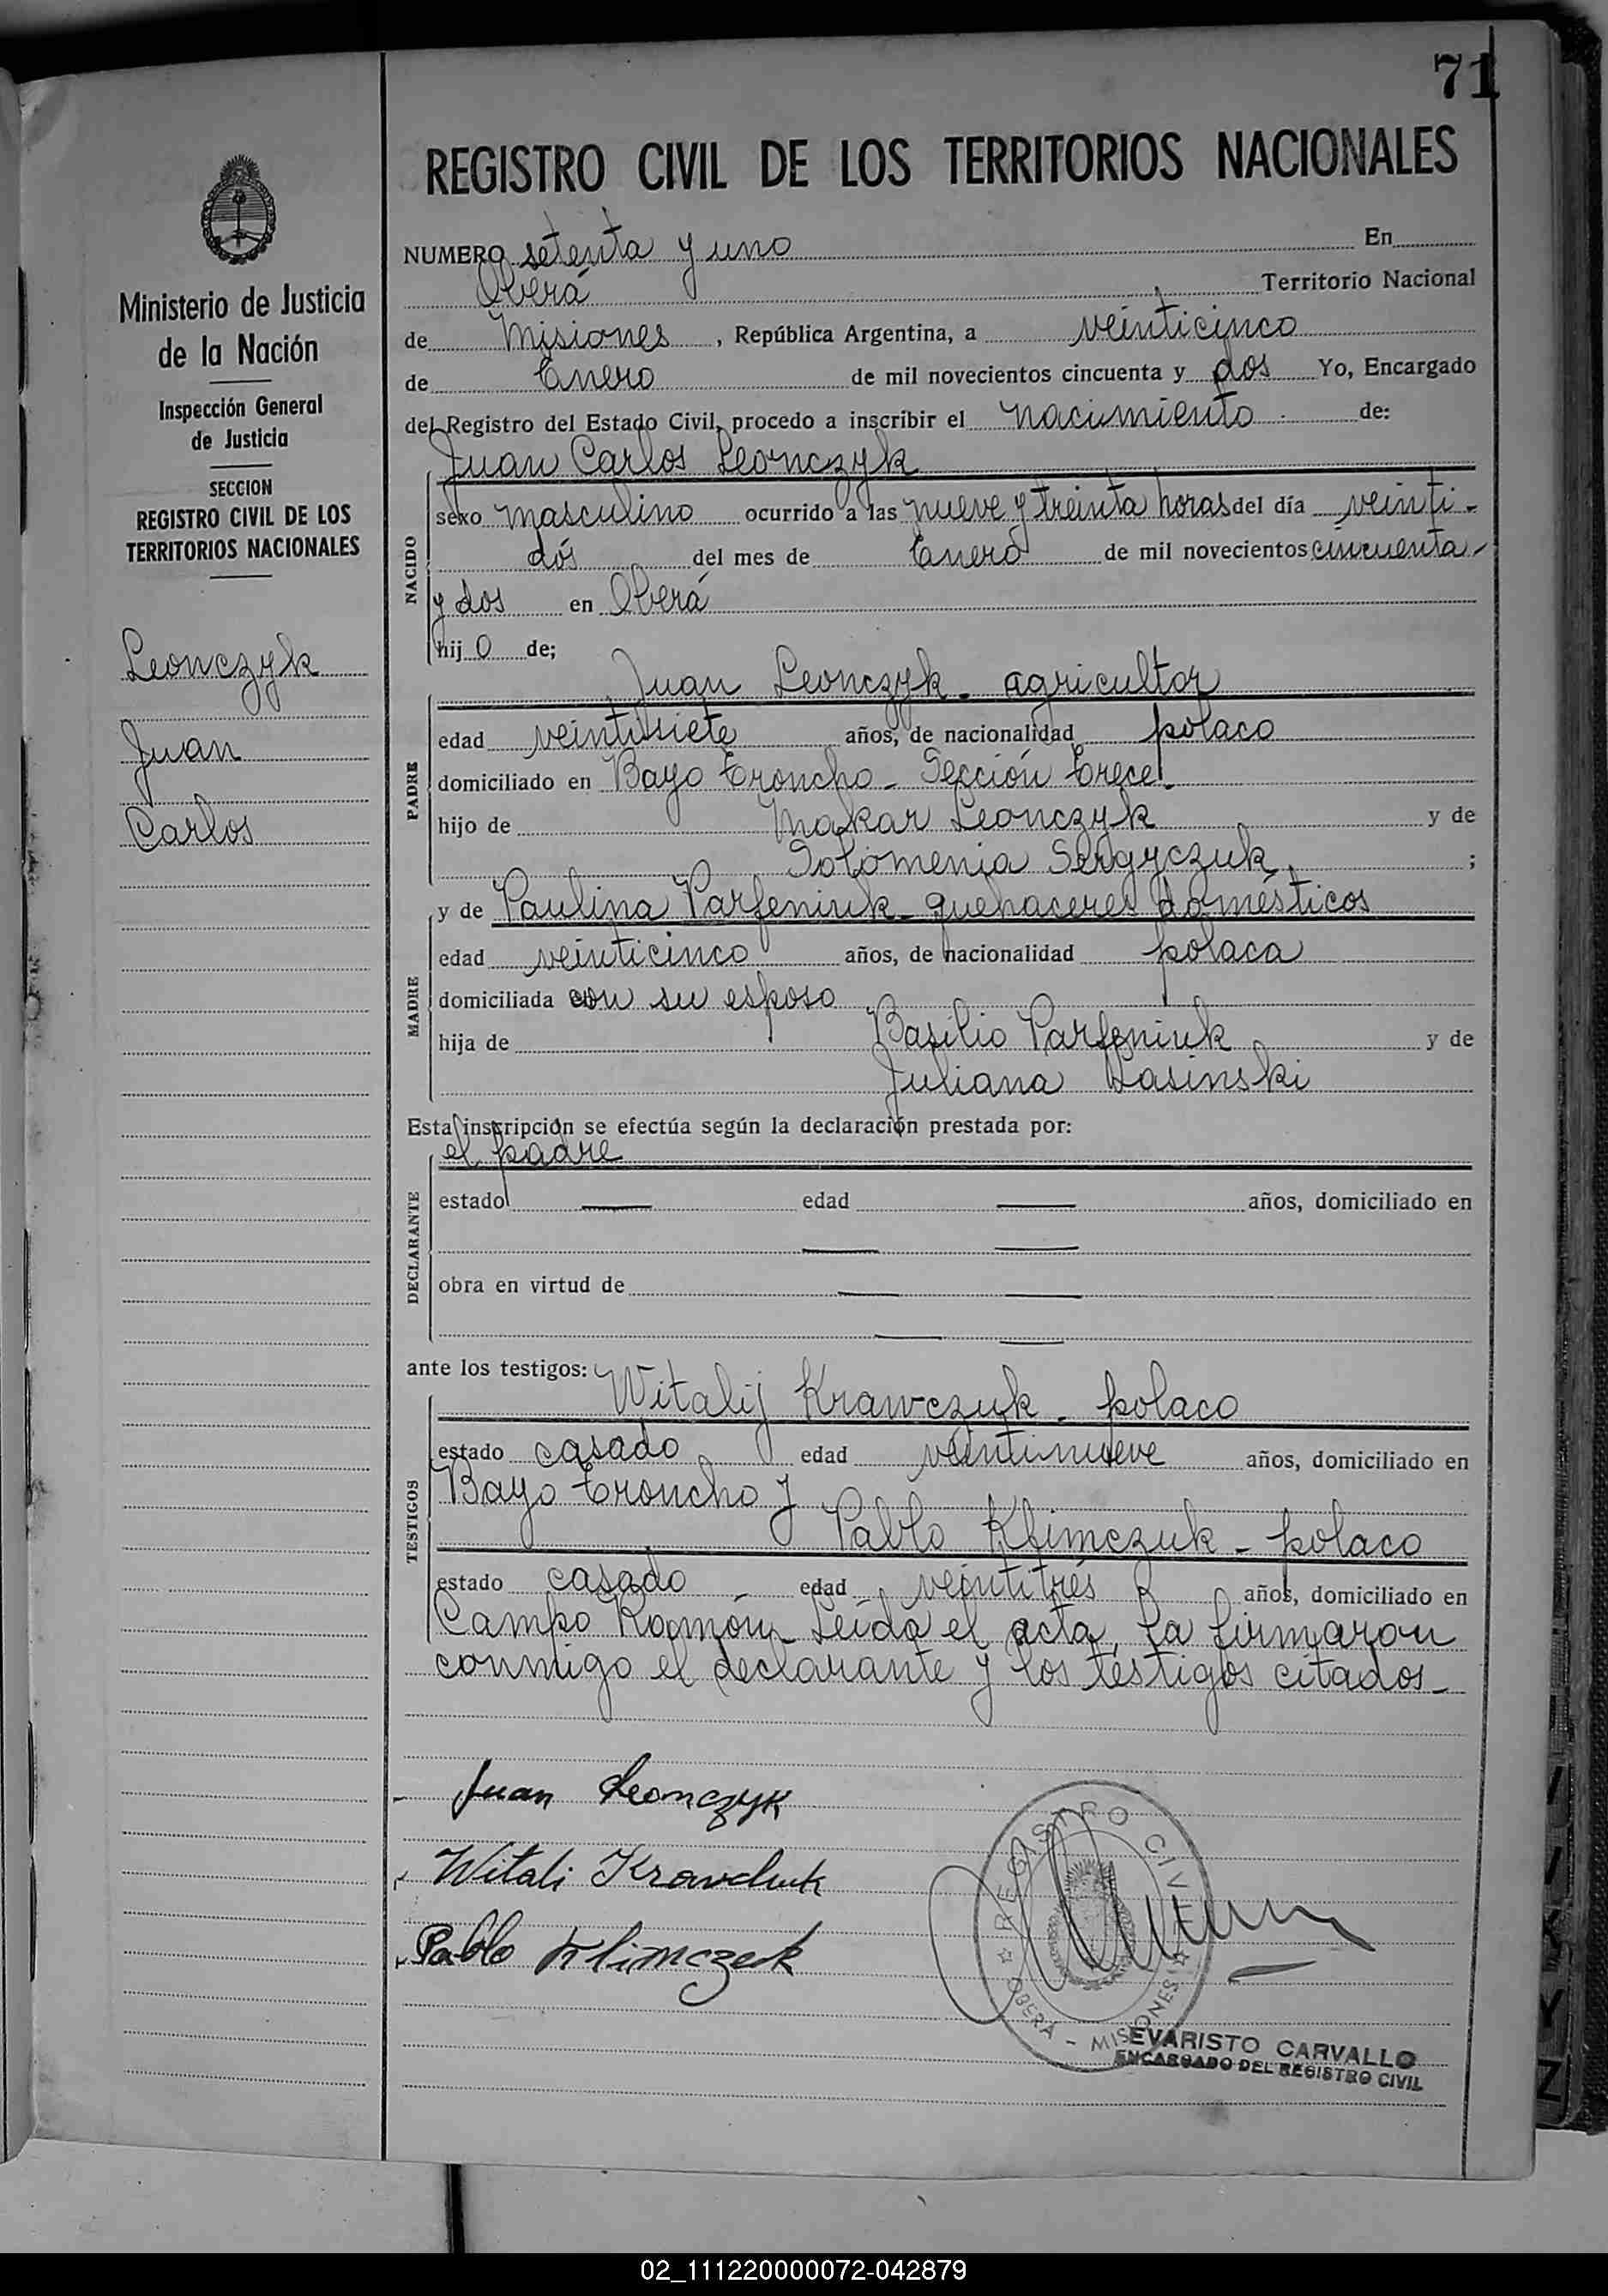 71
REGISTRO CIVIL DE LOS TERRITORIOS NACIONALES
Ministerio de Justicia
de la Nación
Inspección General
de Justicia
SECCION
REGISTRO CIVIL DE LOS
TERRITORIOS NACIONALES
Leonczyk
Juan
Carlos
NUMERO setenta y uno En
Oberá Territorio Nacional
de Misiones, República Argentina, a veinticinco
de Enero de mil novecientos cincuenta y dos Yo, Encargado
del Registro del Estado Civil, procedo a inscribir el nacimiento de:
Juan Carlos Leonczyk
NACIDO
sexo masculino ocurrido a las nueve y treinta horas del día veinti-
dós del mes de Enero de mil novecientos cincuenta
y dos en Oberá
hijo de;
Juan Leonczyk - agricultor
PADRE
edad veintisiete años, de nacionalidad polaco
domiciliado en Bayo Troncho - Sección Trece.
hijo de Makar Leonczyk y de
Solomenia Sergyczuk ;
y de Paulina Parfeniuk - quehaceres domésticos
MADRE
edad veinticinco años, de nacionalidad polaca
domiciliada con su esposo
hija de Basilio Parfeniuk y de
Juliana Lasinski
Esta inscripción se efectúa según la declaración prestada por:
el padre
DECLARANTE
estado — edad — años, domiciliado en
— —
obra en virtud de — —
— —
ante los testigos: Witalij Krawczuk - polaco
TESTIGOS
estado casado edad veintinueve años, domiciliado en
Bayo Troncho y
Pablo Klimczuk - polaco
estado casado - edad veintitrés años, domiciliado en
Campo Ramón - Leída el acta, la firmaron
conmigo el declarante y los testigos citados -
Juan Leonczyk
Witali Krawchuk
Pablo Klimczuk
REGISTRO CIVIL
OBERÁ - MISIONES
EVARISTO CARVALLO
ENCARGADO DEL REGISTRO CIVIL
02_111220000072-042879